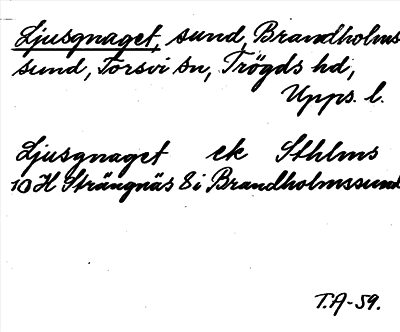 Ljusgnaget, sund, Brandholms
sund, Torsvi sn, Trögds hd,
Upps. l.
Ljusgnaget ek Sthlms
10 H Strängnäs 8 i Brandholmssund
T.A-59.